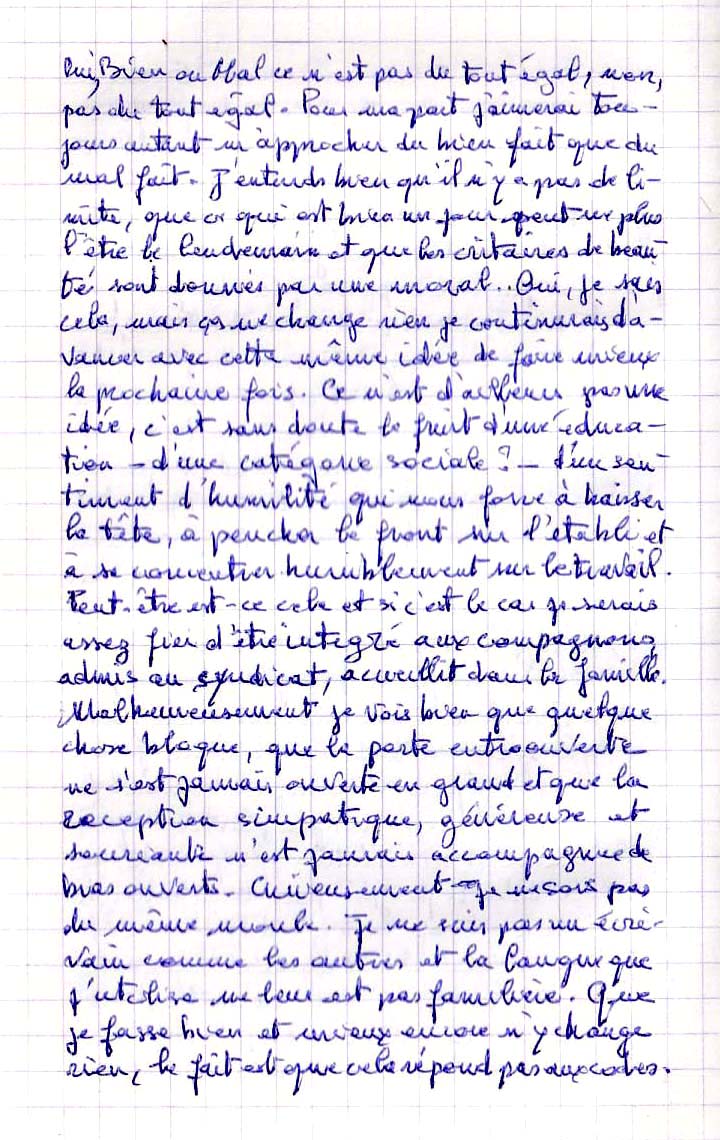 Oui, Bien ou Mal ce n'est pas du tout égal, non,
pas du tout égal. Pour ma part j'aimerai tou-
jours autant m'approcher du bien fait que du
mal fait. J'entends bien qu'il n'y a pas de li-
mite, que ce qui est bien un jour peut ne plus
l'être le lendemain et que les critaires de beau-
té sont donnés par une moral.. Oui, je sais
cela, mais ça ne change rien je continurais d'a-
vancer avec cette même idée de faire mieux
la prochaine fois. Ce n'est d'ailleurs pas une
idée, c'est sans doute le fruit d'une éduca-
tion - d'une catégorie sociale ? - d'un sen-
timent d'humilité qui nous force à baisser
la tête, à pencher le front sur l'établi et
à se concentrer humblement sur le travail.
Peut-être est-ce cela et si c'est le cas je serais
assez fier d'être integré aux compagnons,
admis au syndicat, acueillit dans la famille.
Malheureusement je vois bien que quelque
chose bloque, que la porte entroouverte
ne s'est jamais ouverte en grand et que la
reception simpatique, généreuse et
souriante n'est jamais accompagnée de
bras ouverts. Curieusement je ne suis pas
du même monde. Je ne suis pas un écri-
vain comme les autres et la langue que
j'utilise ne leur est pas familière. Que
je fasse bien et mieux encore n'y change
rien, le fait est que cela répond pas aux codes.